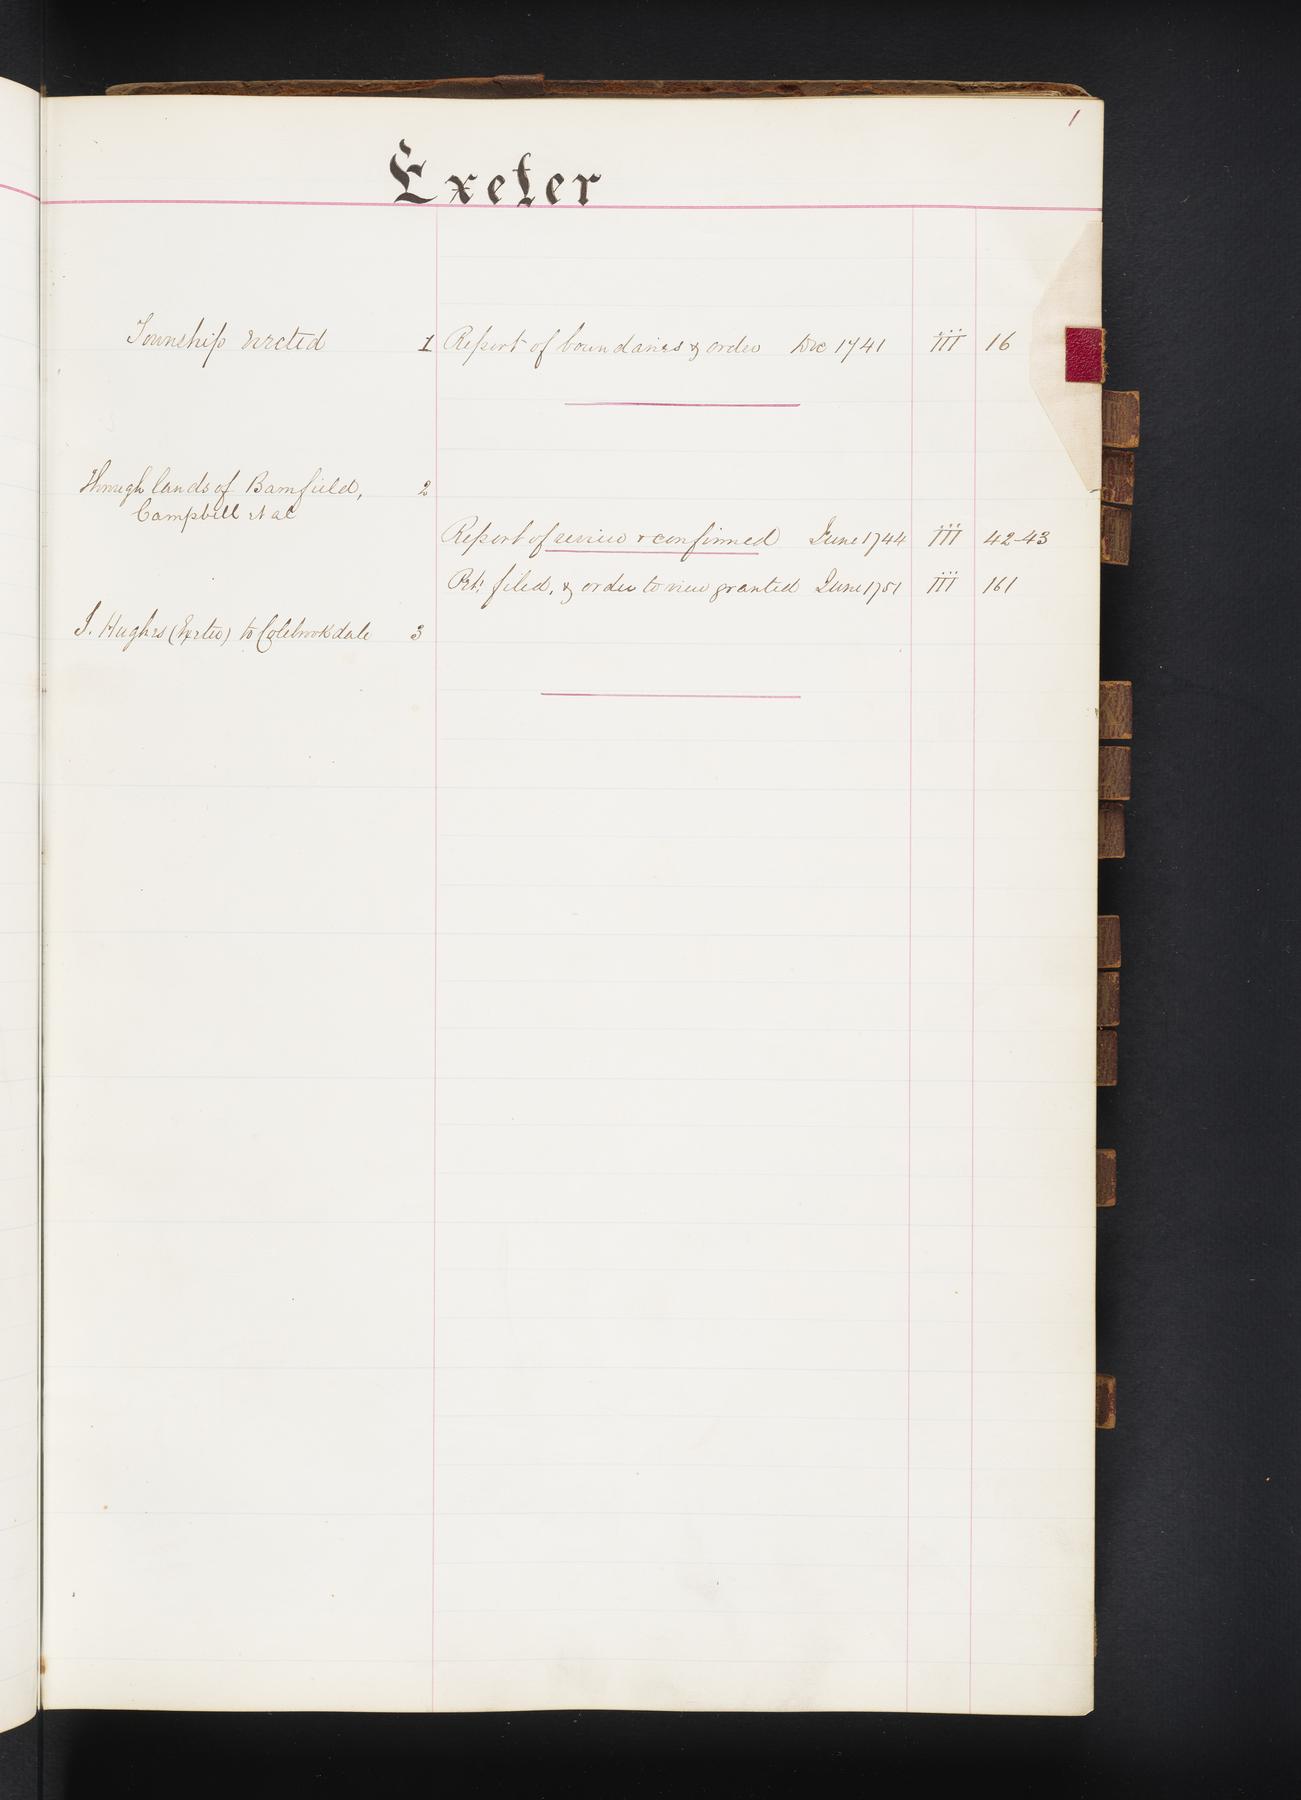 1
Exeter
Township Erected 1 Report of boundaries & order Dec 1741 III 16
Through lands of Bamfield, 2
Campbell et al
Report of review & confirmed June 1744 III 42-43
Pet: filed, & order to view granted June 1751 III 161
J. Hughes (Exeter) to Colebrookdale 3